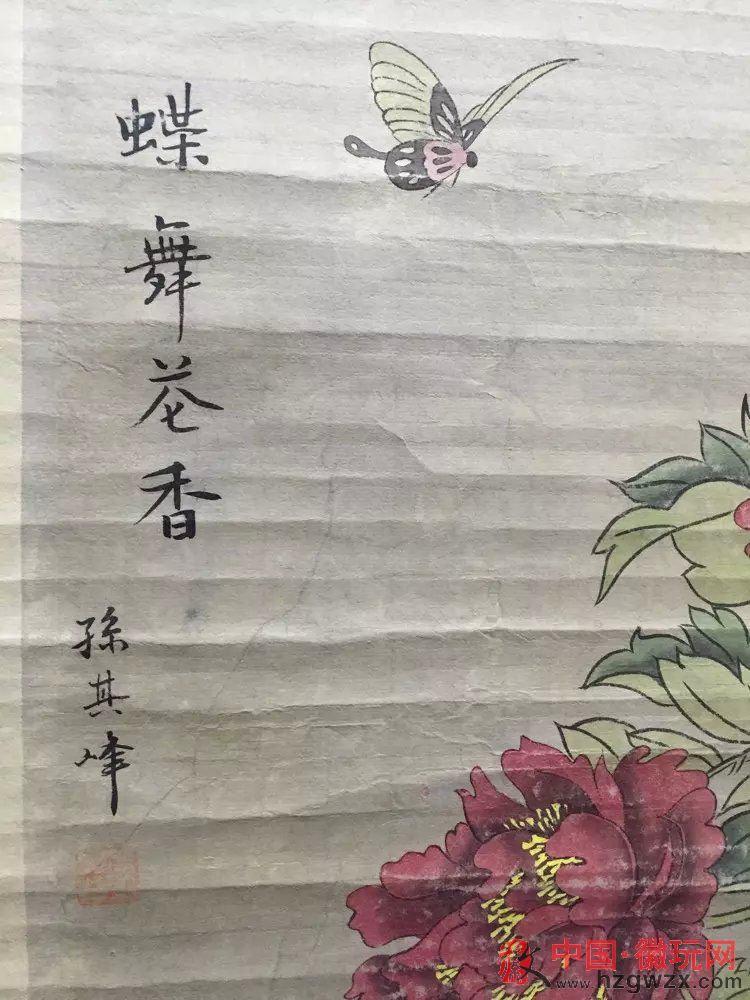 蝶舞花香
孫其峰
中国·徽玩网
www.hzgwzx.com